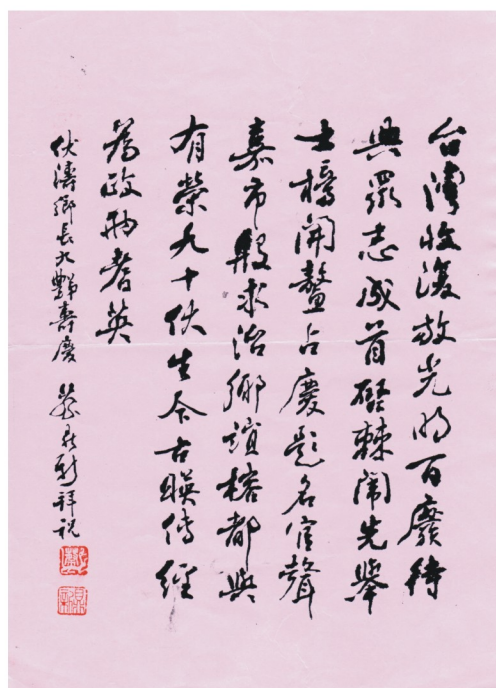 台灣收復放光明百廢待
興眾志成首啓棘闈先舉
士榜開鰲占慶題名官聲
嘉市殷求治鄉誼榕都與
有榮九十伏生今古映傳經
為政兩耆英
伏濤鄉長九豑壽慶 蔡鼎新拜祝